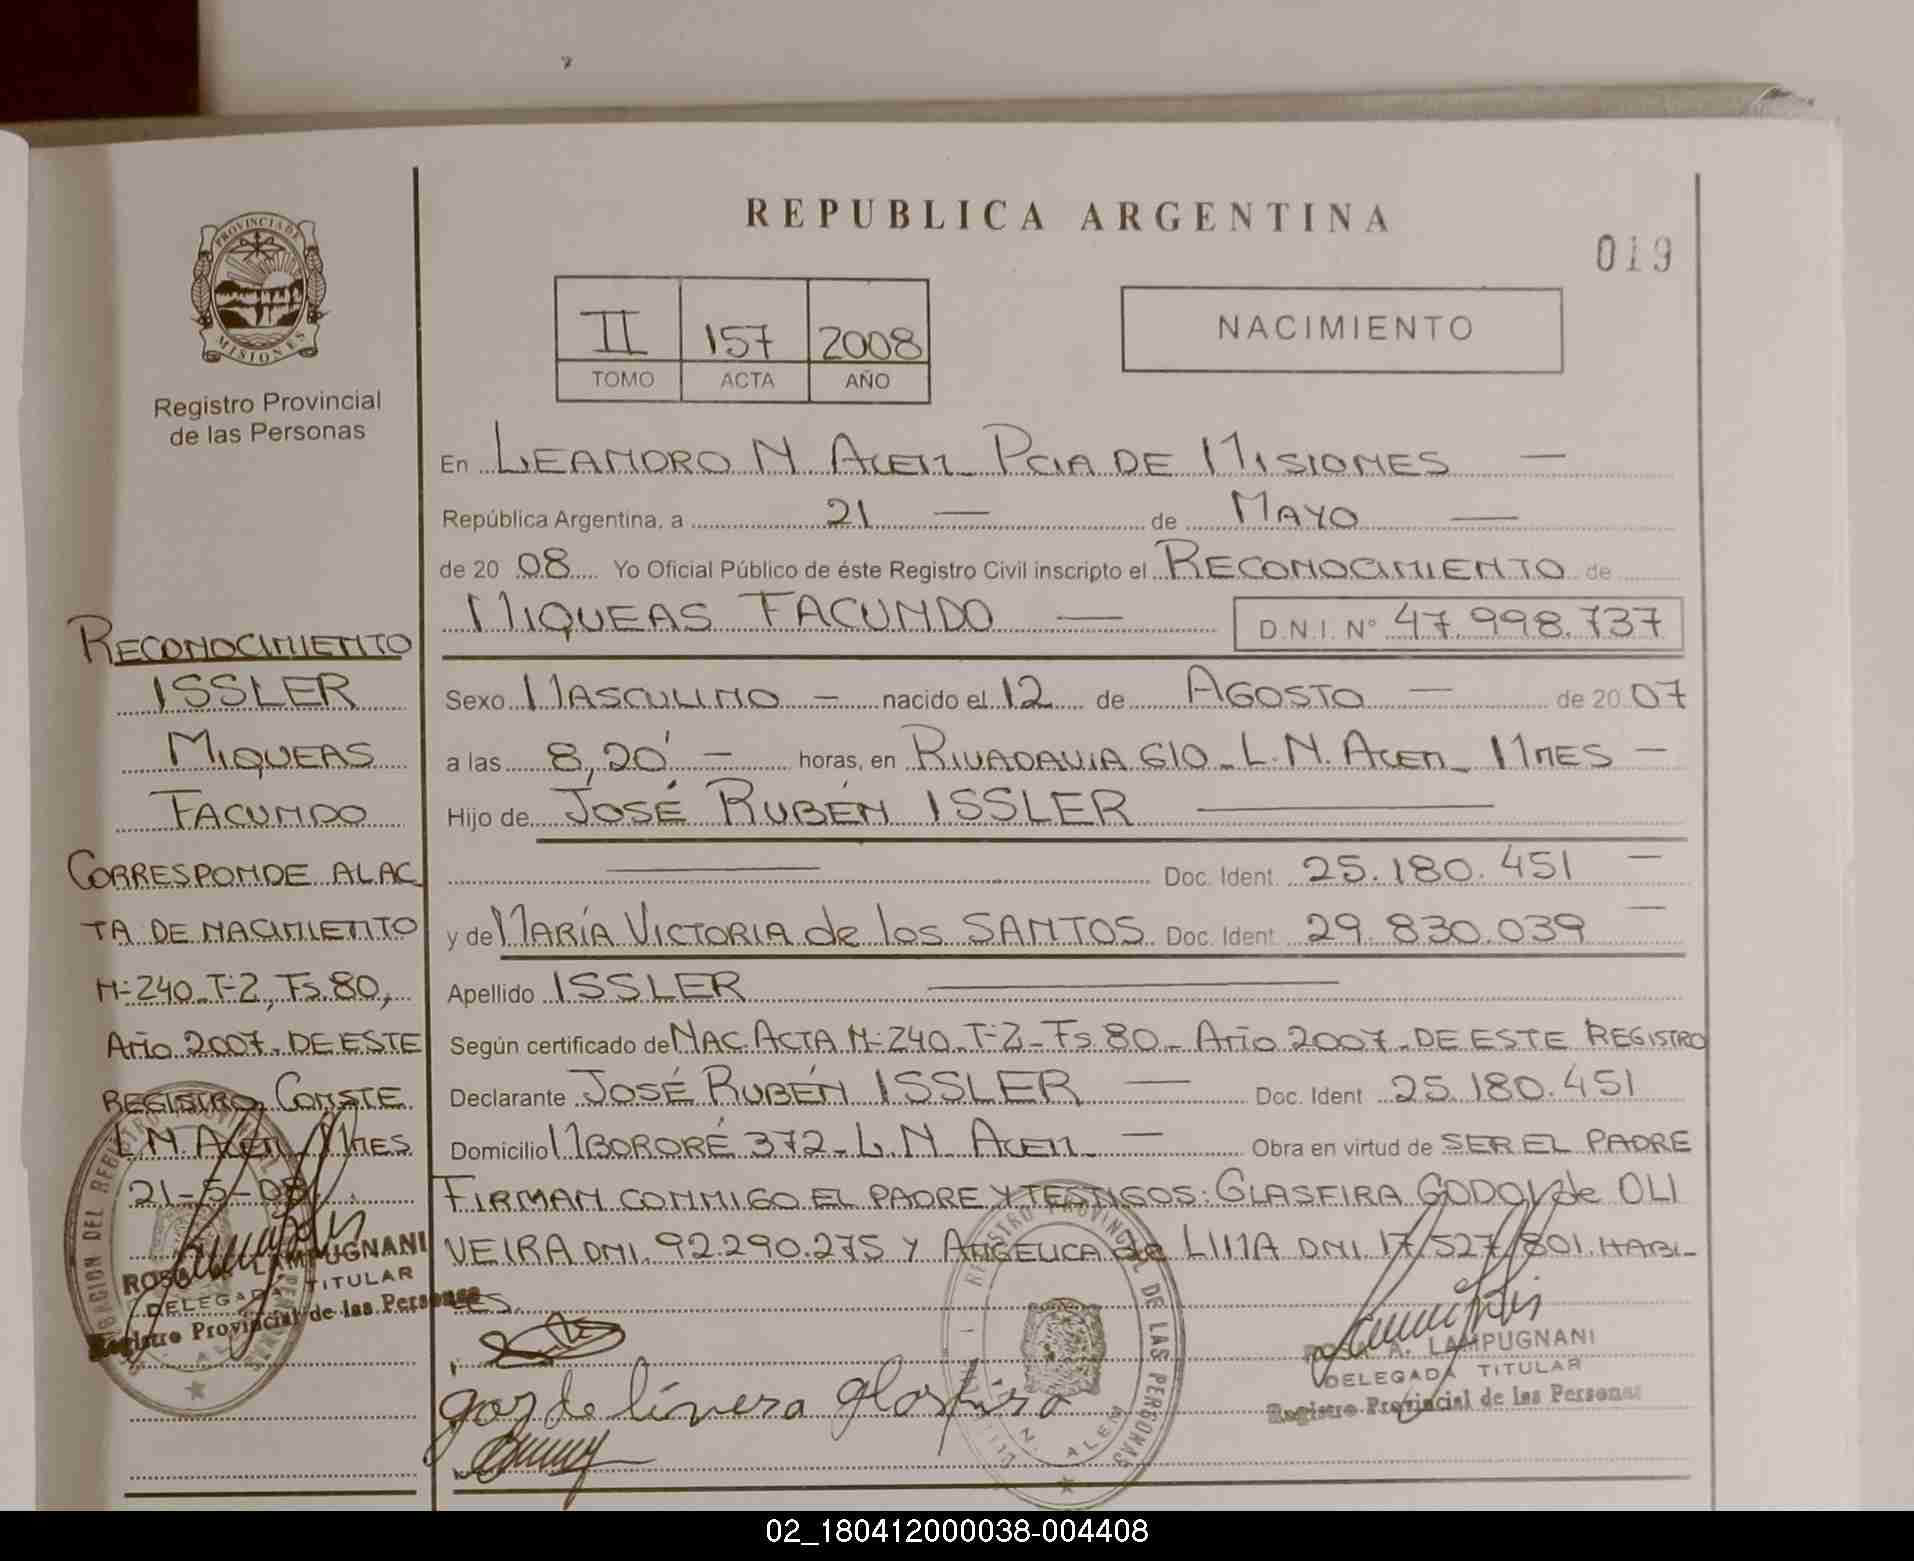 PROVINCIA DE
MISIONES
Registro Provincial
de las Personas
RECONOCIMIENTO
ISSLER
MIQUEAS
FACUNDO
CORRESPONDE AL AC
TA DE NACIMIENTO
Nº 240_T-2, Fs. 80,
Año 2007_DE ESTE
REGISTRO, CONSTE
L.N. ALEM Mnes
21-5-08
LAMPUGNANI
DELEGADA TITULAR
Registro Provincial de las Personas
REPUBLICA ARGENTINA
019
II 157 2008
TOMO ACTA AÑO
NACIMIENTO
En LEANDRO N ALEM_ PCIA DE MISIONES —
República Argentina, a 21 — de MAYO —
de 20 08 Yo Oficial Público de éste Registro Civil inscripto el RECONOCIMIENTO de
MIQUEAS FACUNDO — D.N.I. Nº 47.998.737
Sexo MASCULINO — nacido el 12 de AGOSTO — de 20 07
a las 8,20' — horas, en RIVADAVIA 610_L.N. ALEM_ Mnes —
Hijo de JOSÉ RUBÉN ISSLER —
— Doc. Ident. 25.180.451 —
y de MARÍA VICTORIA de los SANTOS Doc. Ident. 29.830.039 —
Apellido ISSLER —
Según certificado de NAC. ACTA Nº 240_T-2_Fs. 80_ Año 2007_DE ESTE REGISTRO
Declarante JOSÉ RUBÉN ISSLER — Doc. Ident. 25.180.451
Domicilio MBORORÉ 372_L.N. ALEM_ — Obra en virtud de SER EL PADRE
FIRMAN CONMIGO EL PADRE Y TESTIGOS: GLASFIRA GODOY de OLI
VEIRA DNI. 92.290.275 Y ANGELICA de LIMA DNI. 17.527.801. HABI_
LES.
REGISTRO PROVINCIAL DE LAS PERSONAS
N. ALEM
A. LAMPUGNANI
DELEGADA TITULAR
Registro Provincial de las Personas
02_180412000038-004408